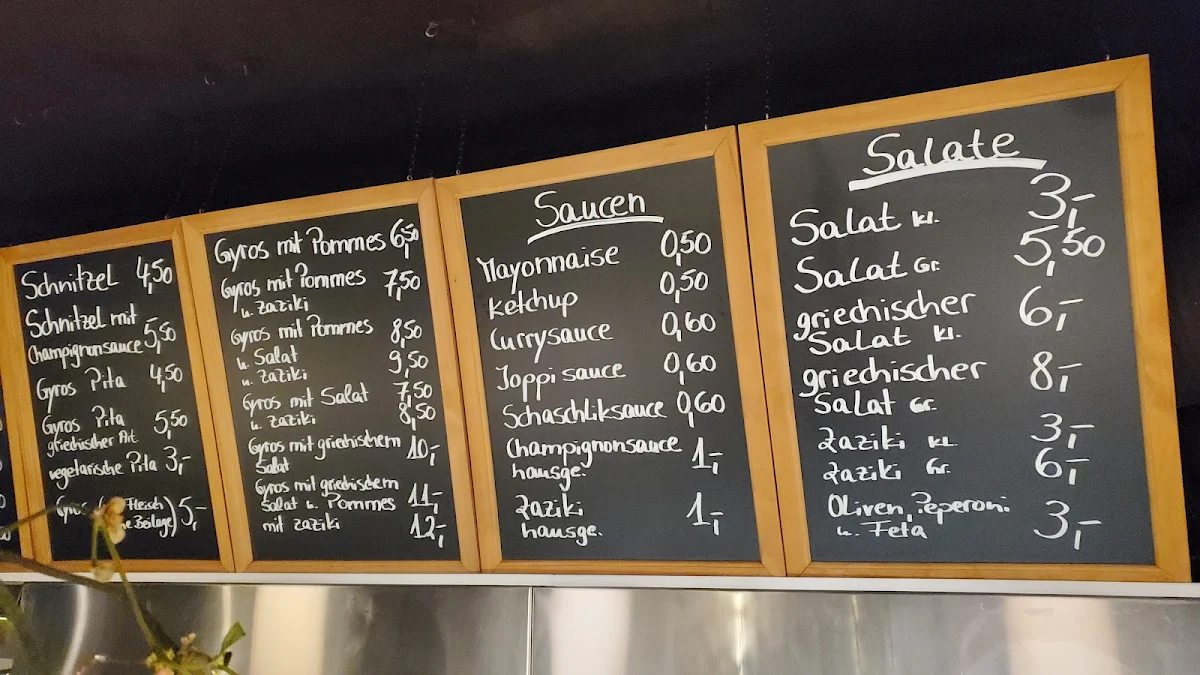 Schnitzel 4,50
Schnitzel mit
Champignonsauce 5,50
Gyros Pita 4,50
Gyros Pita 5,50
griechischer Art
vegetarische Pita 3,-
Fleisch) 5,-
Beilage)
Gyros mit Pommes 6,50
Gyros mit Pommes 7,50
u. zaziki
Gyros mit Pommes 8,50
u. Salat
u. zaziki 9,50
Gyros mit Salat 7,50
u. zaziki 8,50
Gyros mit griechischem 10,-
Salat
Gyros mit griechischem
Salat u. Pommes 11,-
mit zaziki 12,-
Saucen
Mayonnaise 0,50
ketchup 0,50
Currysauce 0,60
Joppi sauce 0,60
Schaschliksauce 0,60
Champignonsauce 1,-
hausge.
zaziki 1,-
hausge.
Salate
Salat kl. 3,-
Salat Gr. 5,50
griechischer 6,-
Salat kl.
griechischer 8,-
Salat Gr.
zaziki kl. 3,-
zaziki Gr. 6,-
Oliven, Peperoni
u. Feta 3,-